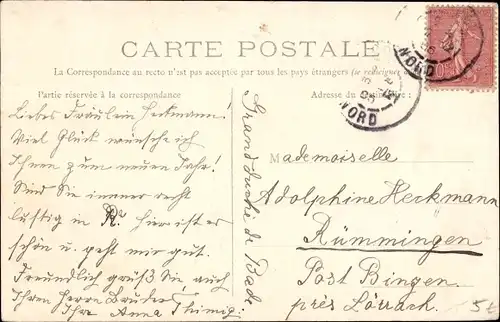 CARTE POSTALE
La Correspondance au recto n'est pas acceptée par tous les pays étrangers (se renseigner
Partie réservée à la correspondance
Adresse du
Liebes Fräulein Heckmann!
Viel Glück wünsche ich
Ihnen zum neuen Jahr!
Sind Sie immer recht
lustig in R? hier ist es
schön u. geht mir gut.
Freundlich grüß Sie, auch
Ihren Herrn Bruder,
Ihre Anna
Grand duché de Bade
Mademoiselle
Adolphine Heckmann
Rümmingen
Post Bingen
près Lörrach.
NORD
NORD